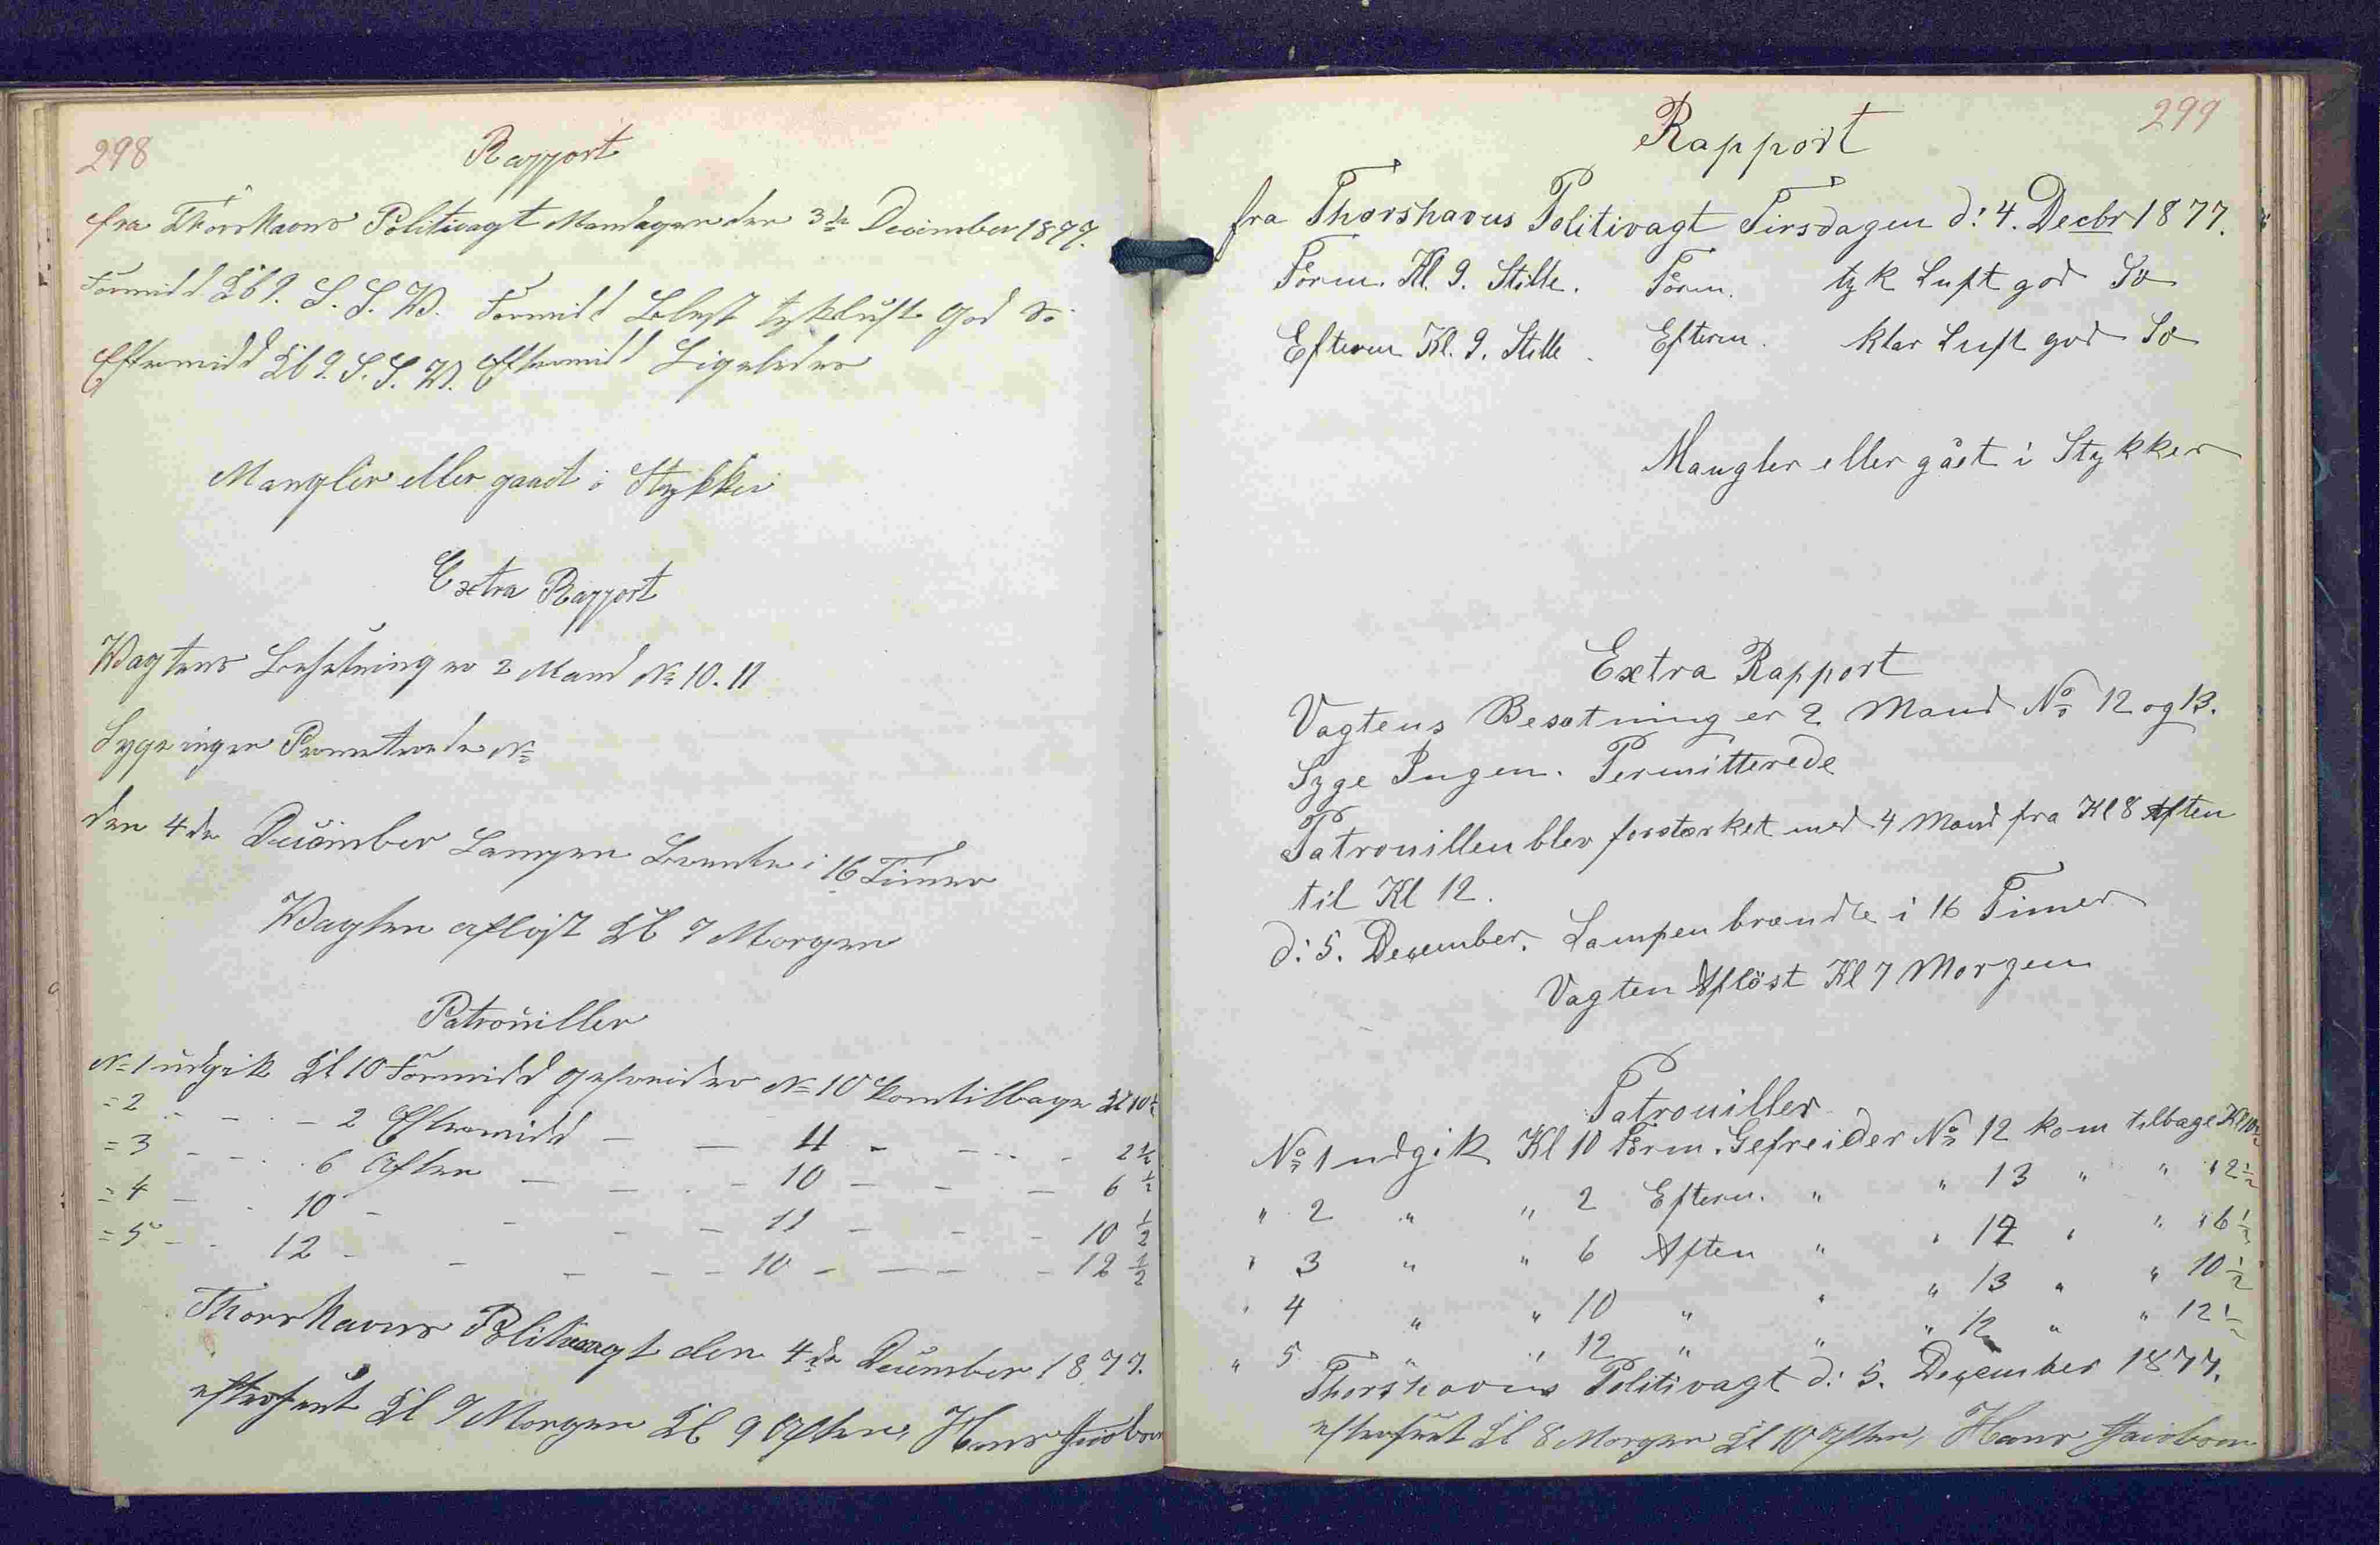 298
Rapport
fra Thorshavns Politivagt Mandagen den 3de December 1877.
Formidd Kl 9. S. S. W. Formidd Blæst tyk luft god Sö
Eftermidd Kl 9. S. S. W. Eftermidd Ligeledes
Mangler eller gaaet i Stykker
Extra Rapport
Wagtens Besetning er 2 Mand No 10. 11
Syge ingen Permeterede No
den 4de December Lampen Brente i 16 Timer
Wagten aflöst Kl 7 Morgen
Patrouiller
No 1 udgik Kl 10 Formidd gefreider No 10 kom tilbage Kl 10½
= 2 - - - 2 Eftermidd - - 11 - - - 2½
= 3 - - - 6 Aften - - - 10 - - - 6½
= 4 - - 10 - - - - 11 - - - 10½
= 5 - - 12 - - - - 10 - - - 12½
Thorshavns Politivagt den 4de December 1877.
efterseet Kl 9 Morgen Kl 9 Aften, Hans Jacobsen
299
Rapport
fra Thorshavns Politivagt Tirsdagen d: 4. Decbr 1877.
Form. Kl. 9. Stille. Form. tyk Luft god Sö
Efterm Kl. 9. Stille. Efterm. klar Luft god Sö
Mangler eller gået i Stykker
Extra Rapport
Vagtens Besætning er 2 Mand No 12 og 13.
Syge Ingen. Permitterede
Patrouillen blev forstærket med 4 Mand fra Kl 8 Aften
til Kl 12.
d: 5. December. Lampen brændte i 16 Timer
Vagten Aflöst Kl 7 Morgen
Patrouiller
No 1 udgik Kl 10 Form. Gefreider No 12 kom tilbage Kl 10½
" 2 " " 2 Efterm. " " 13 " " " 2½
" 3 " " 6 Aften " " 12 " " " 6½
" 4 " " 10 " " " 13 " " 10½
" 5 " " 12 " " " 12 " " 12½
Thorshavns Politivagt d: 5. December 1877.
efterseet Kl 8 Morgen Kl 10 Aften, Hans Jacobsen